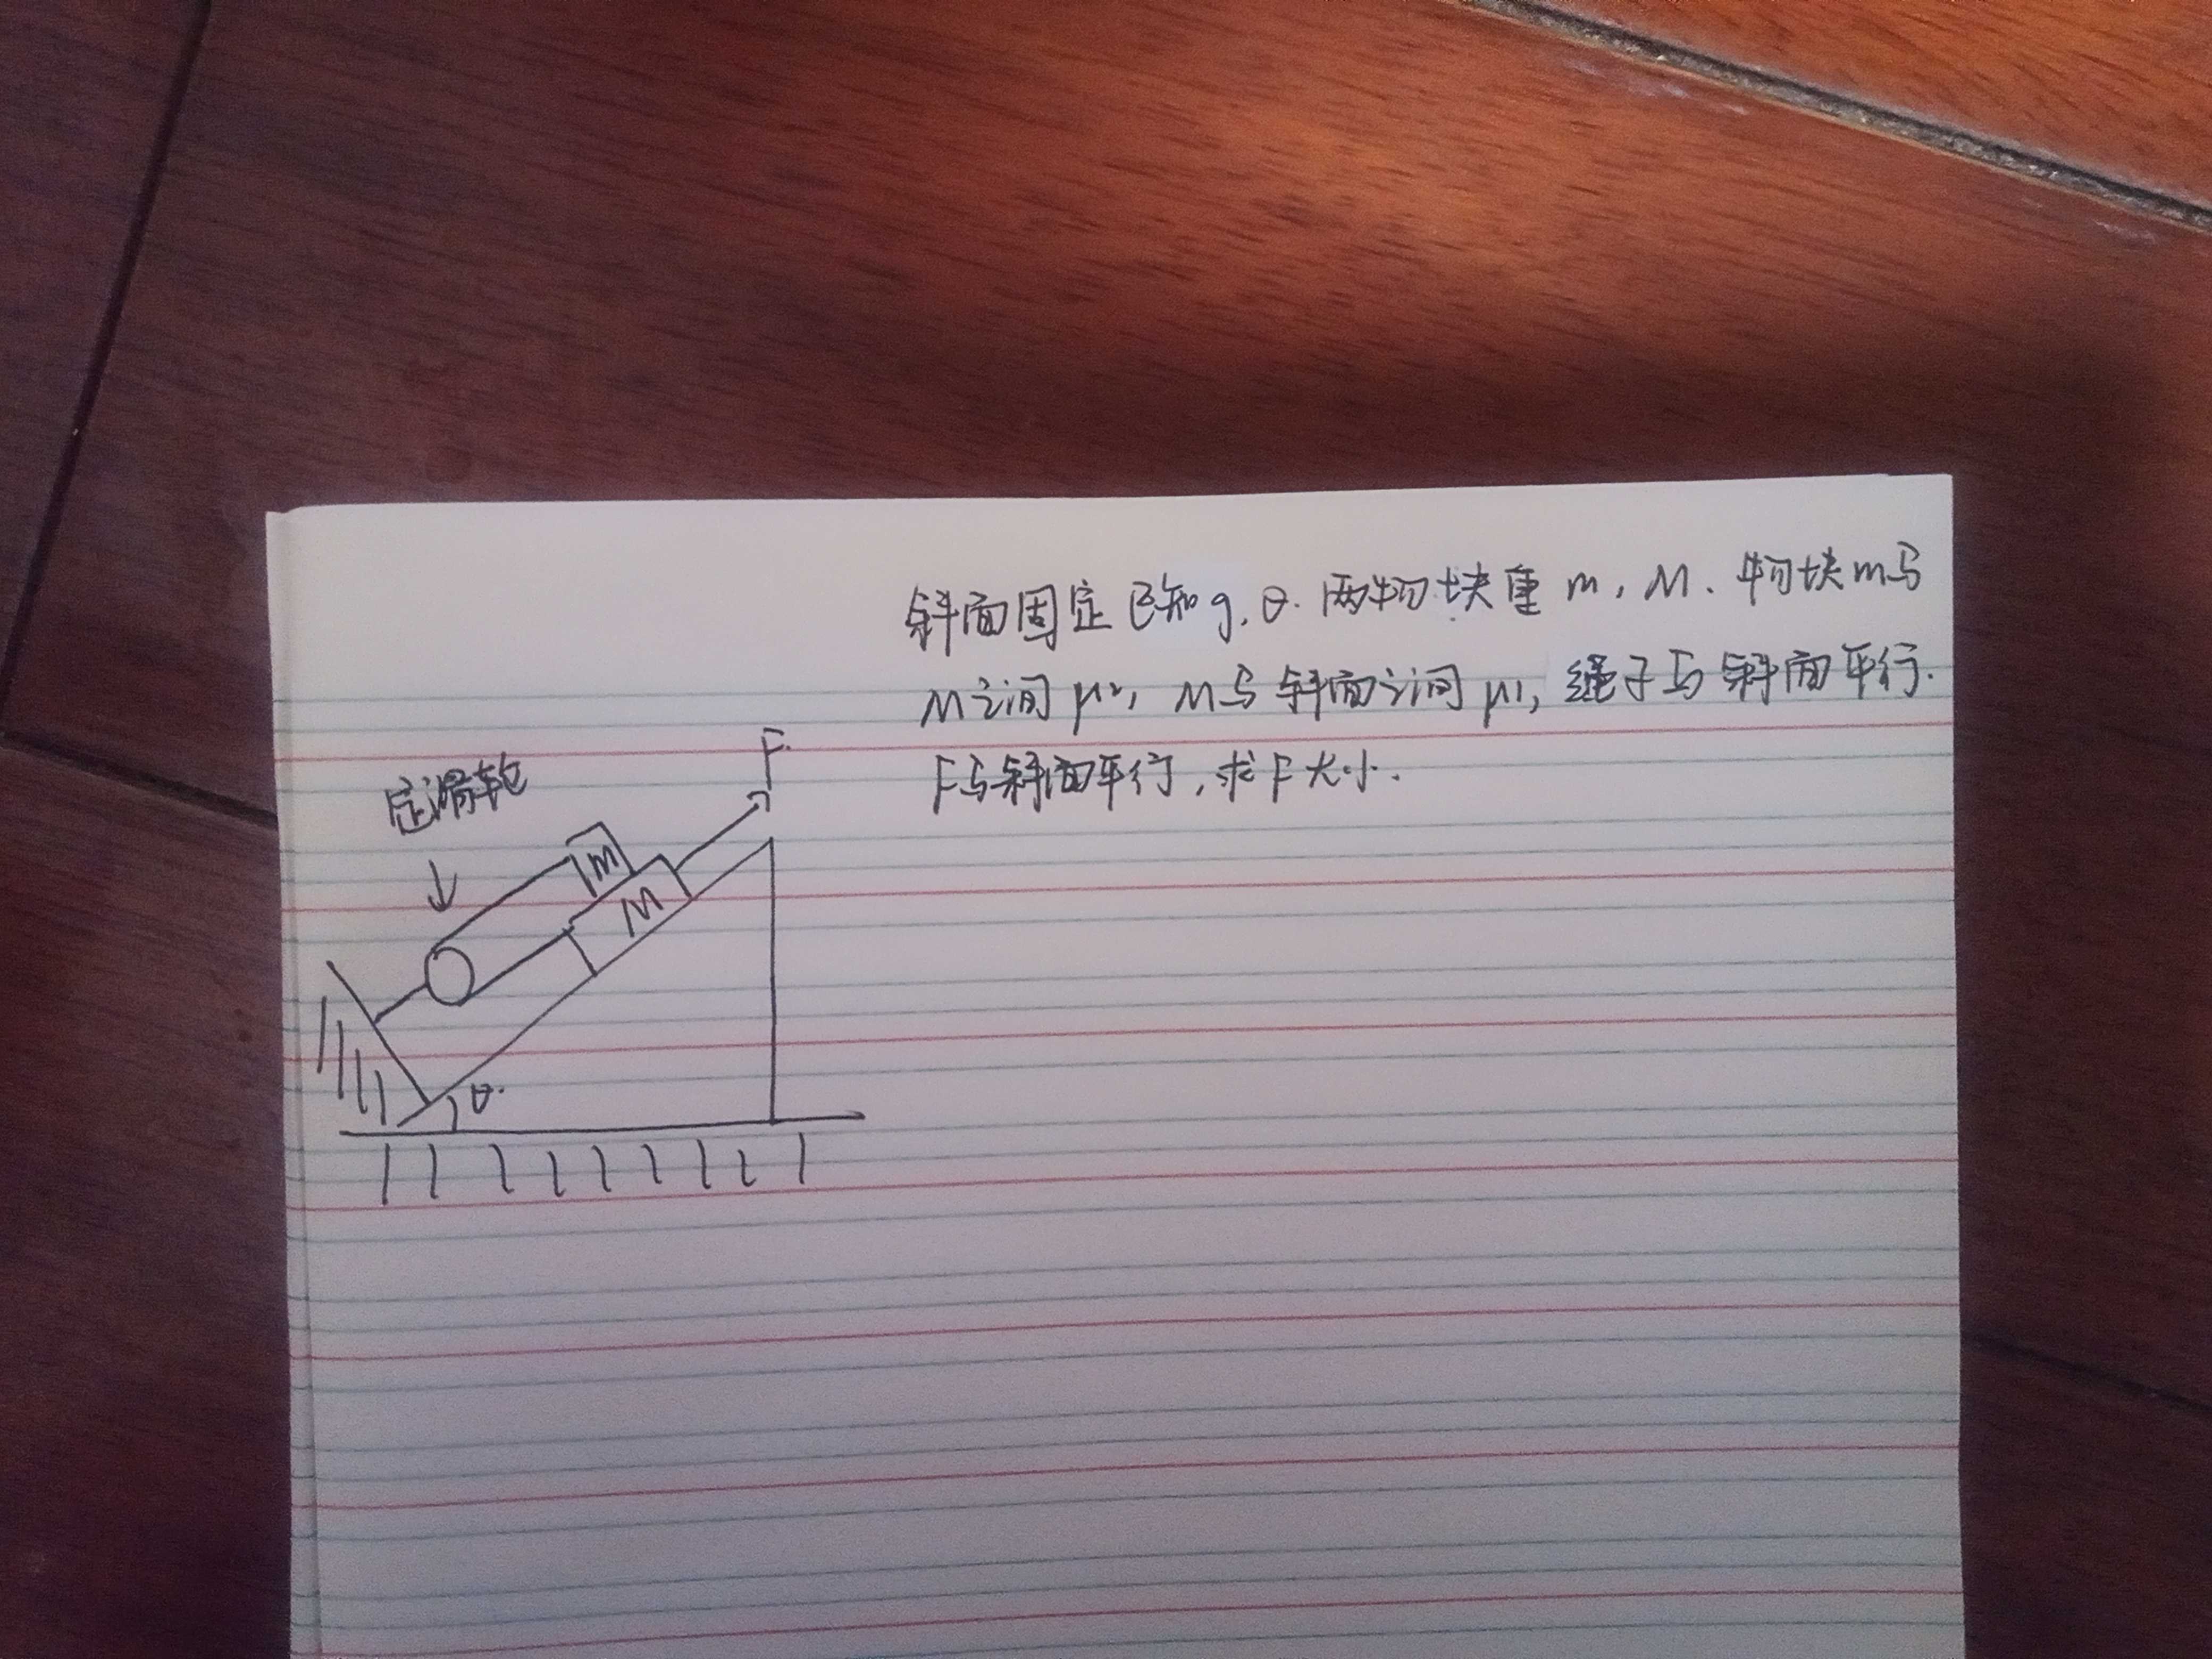 斜面固定已知g.θ.两物块重m,M.物块m与
M之间μ2,M与斜面之间μ1,绳子与斜面平行.
F与斜面平行,求F大小.
F
定滑轮
m
M
θ